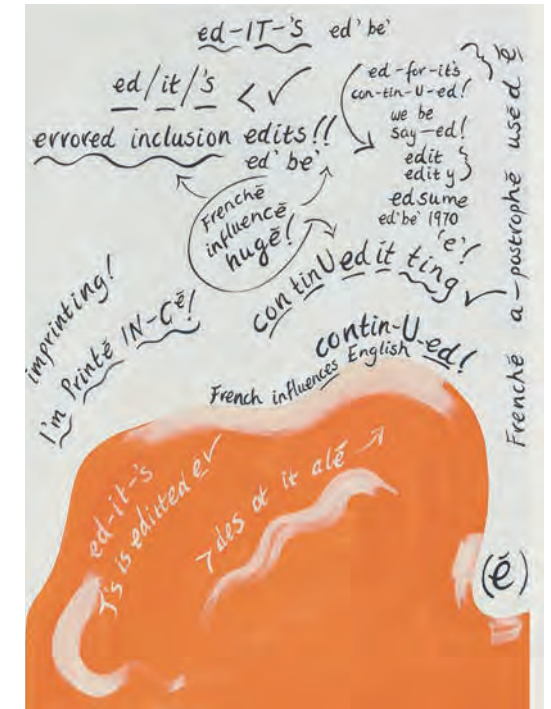 ed-IT-'S ed'be'
ed/it/'s < ✓
errored inclusion edits!!
ed'be'
ed-for-it's
con-tin-U-ed!
we be
say-ed!
edit
edity
edsume
ed'be' 1970
'e'!
Frenchē
influencē
hugē!
continUedit ting ✓
imprinting!
I'm Printē IN-Cē!
contin-U-ed!
French influences English
Frenchē a-postrophē usēd ē
ed-it-'s
is editted e✓
des of it alē
(ē)